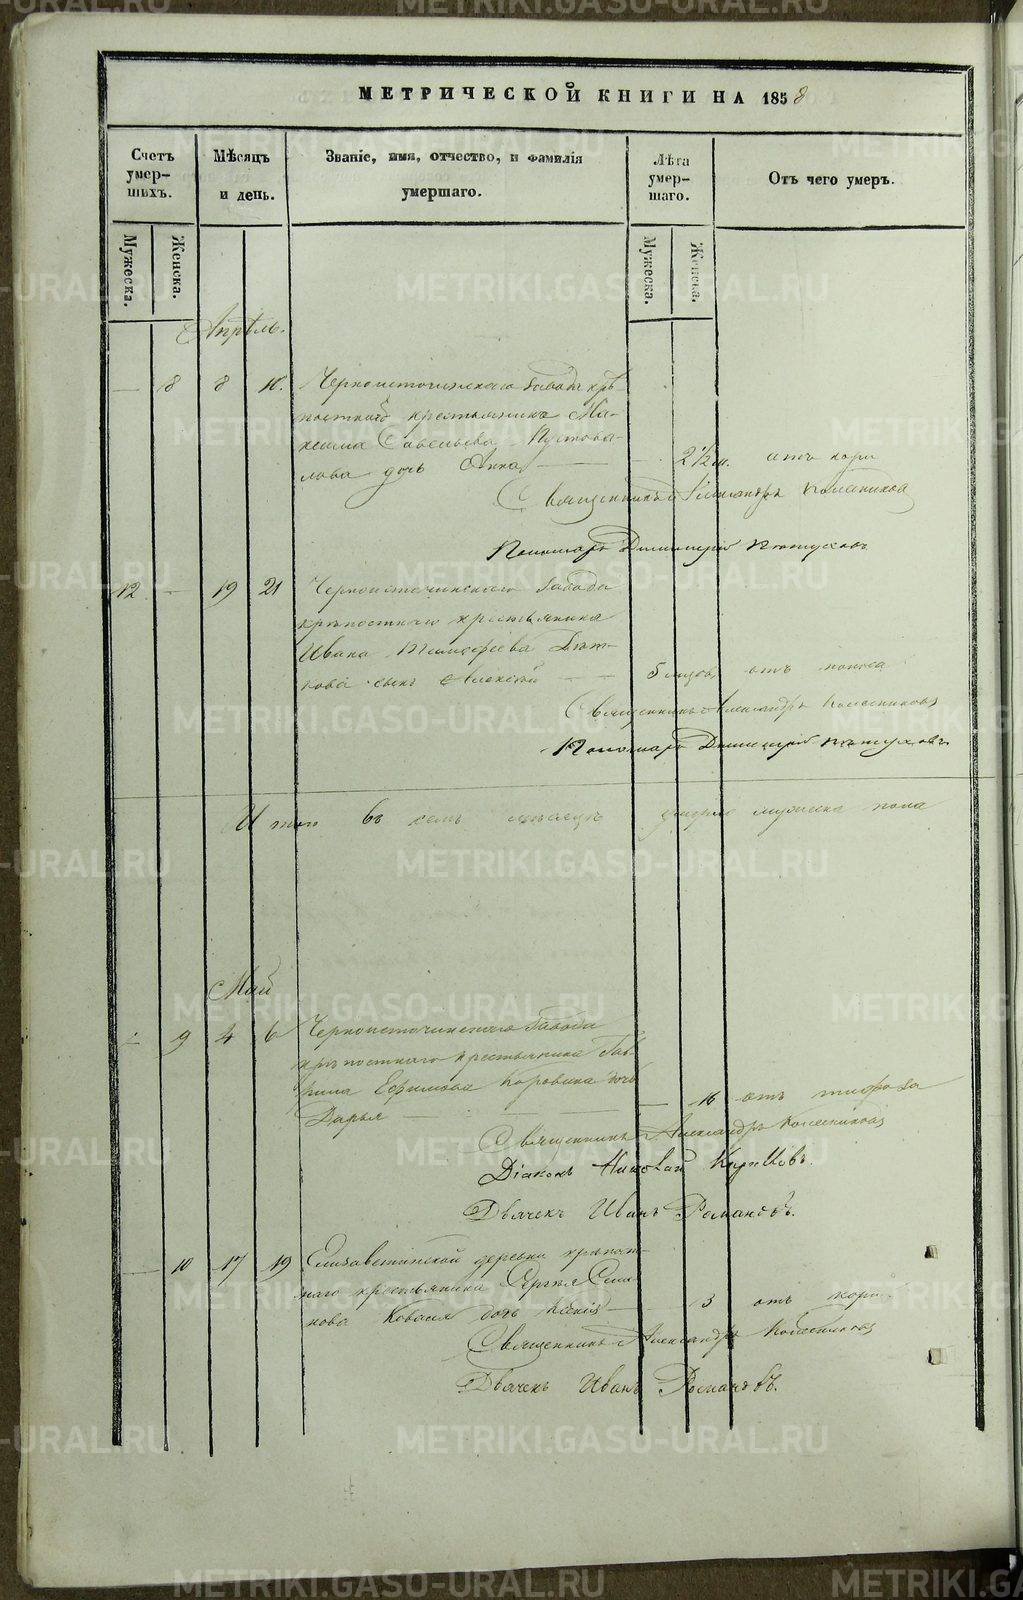 МЕТРИЧЕСКОЙ КНИГИ НА 1858
Счетъ умер-шихъ.
Мѣсяцъ и день.
Званіе, имя, отчество, и фамилія умершаго.
Лѣта умер-шаго.
Отъ чего умеръ.
Мужеска.
Женска.
Мужеска.
Женска.
Апрѣль.
— 8 8 10. Черноисточинскаго завода крѣ
постнаго крестьянина Ма-
ксима Савельева Пустова-
лова дочь Анна — 2 1/2 м. отъ кори
Священникъ Александръ Колесниковъ
Пономарь Димитрій Пѣтуховъ
12 — 19 21 Черноисточинскаго завода
крѣпостнаго крестьянина
Ивана Тимофѣева
сынъ Алексѣй — — 5 отъ поноса
Священникъ Александръ Колесниковъ
Пономарь Димитрій Пѣтуховъ
Итого въ семъ мѣсяцѣ умерло мужеска пола
Май
— 9 4 6 Черноисточинскаго завода
крѣпостнаго крестьянина Гав-
рила Ефимова Коровина дочь
Дарья — — — — 16 отъ тифоза
Священникъ Александръ Колесниковъ
Діаконъ Николай
Дьячекъ Иванъ Романовъ.
— 10 17 19 Елизаветинской деревни крѣпост-
наго крестьянина Сергѣя Сили-
нова дочь — 3 отъ кори
Священникъ Александръ Колесниковъ
Дьячекъ Иванъ Романовъ.
METRIKI.GASO-URAL.RU